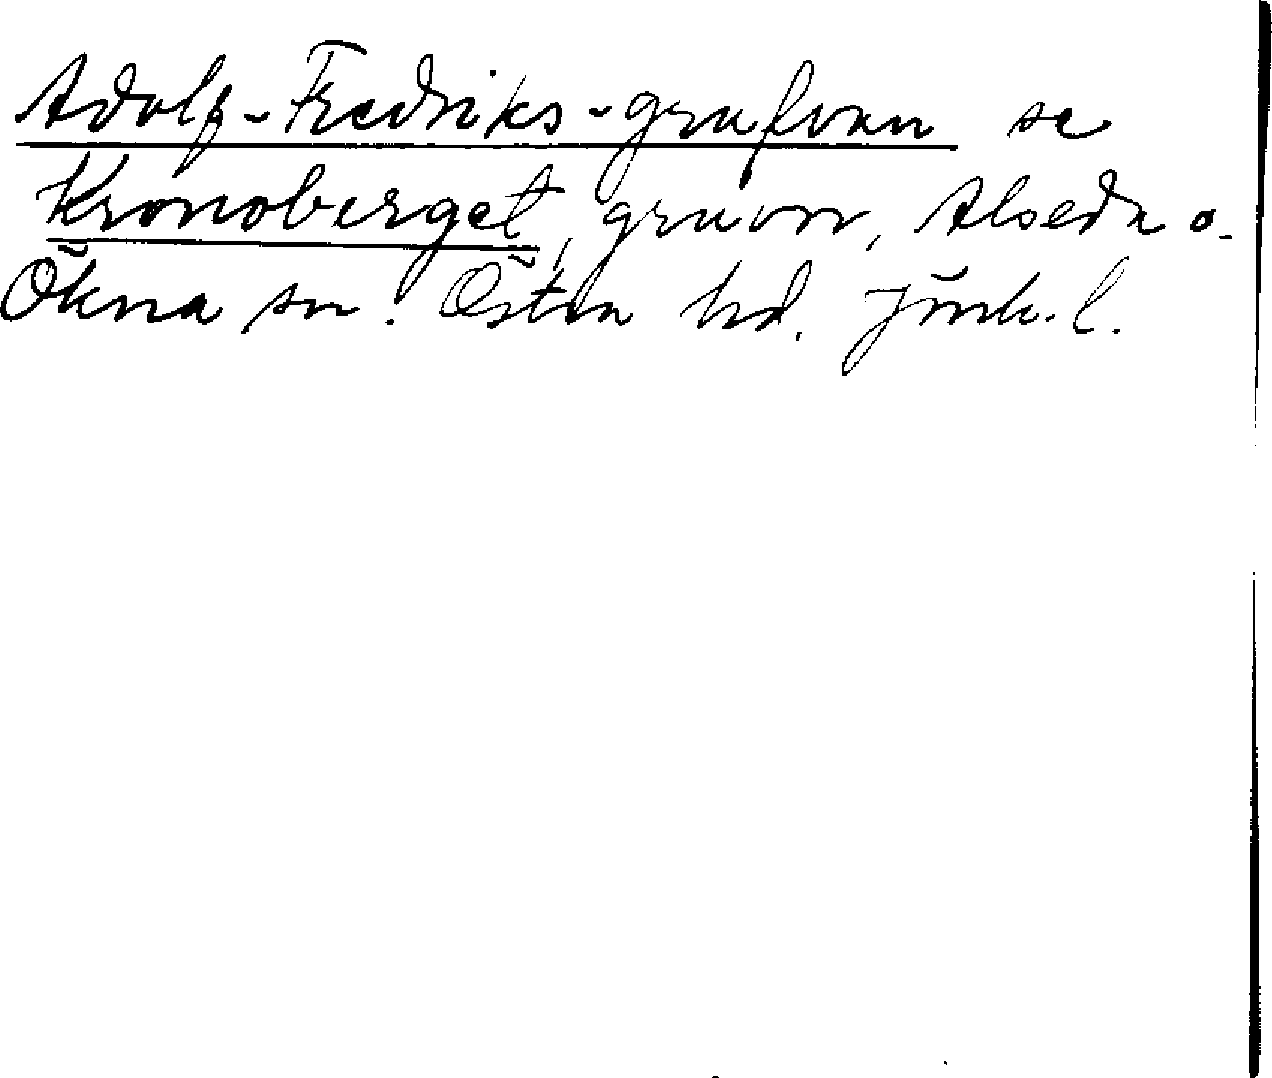 Adolf-Fredriks-grufvan se
Kronoberget, gruvor, Alseda o.
Ökna sn. Östra hd. Jönk. l.